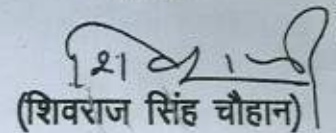 (शिवराज सिंह चौहान)